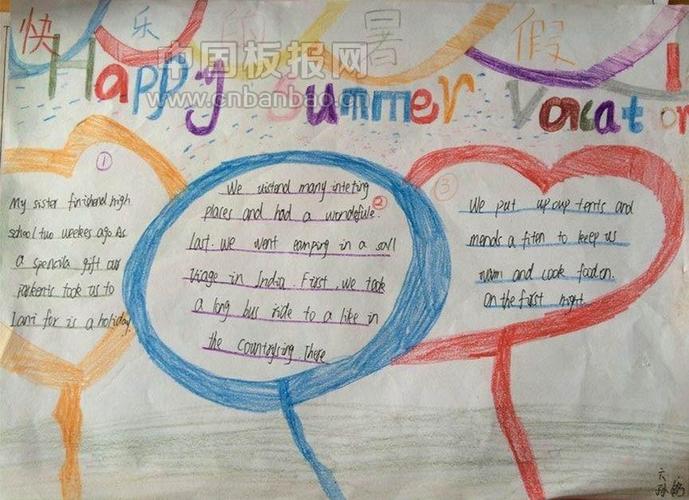 快乐的暑假
中国板报网
www.cnbanbao.cn
Happy Summer Vacation
①
My sister finishend high
school two weekes ago As
a spencila gift our
parkents took us to
Iani for is a holiday
We vistend many inteting
places and had a wondefule ②
last. We went camping in a sall
viage in India. First, we took
a long bus ride to a like in
the countrying There
③
We put up oup tents and
mands a fiten to keep us
warm and cook food on.
on the first night
六